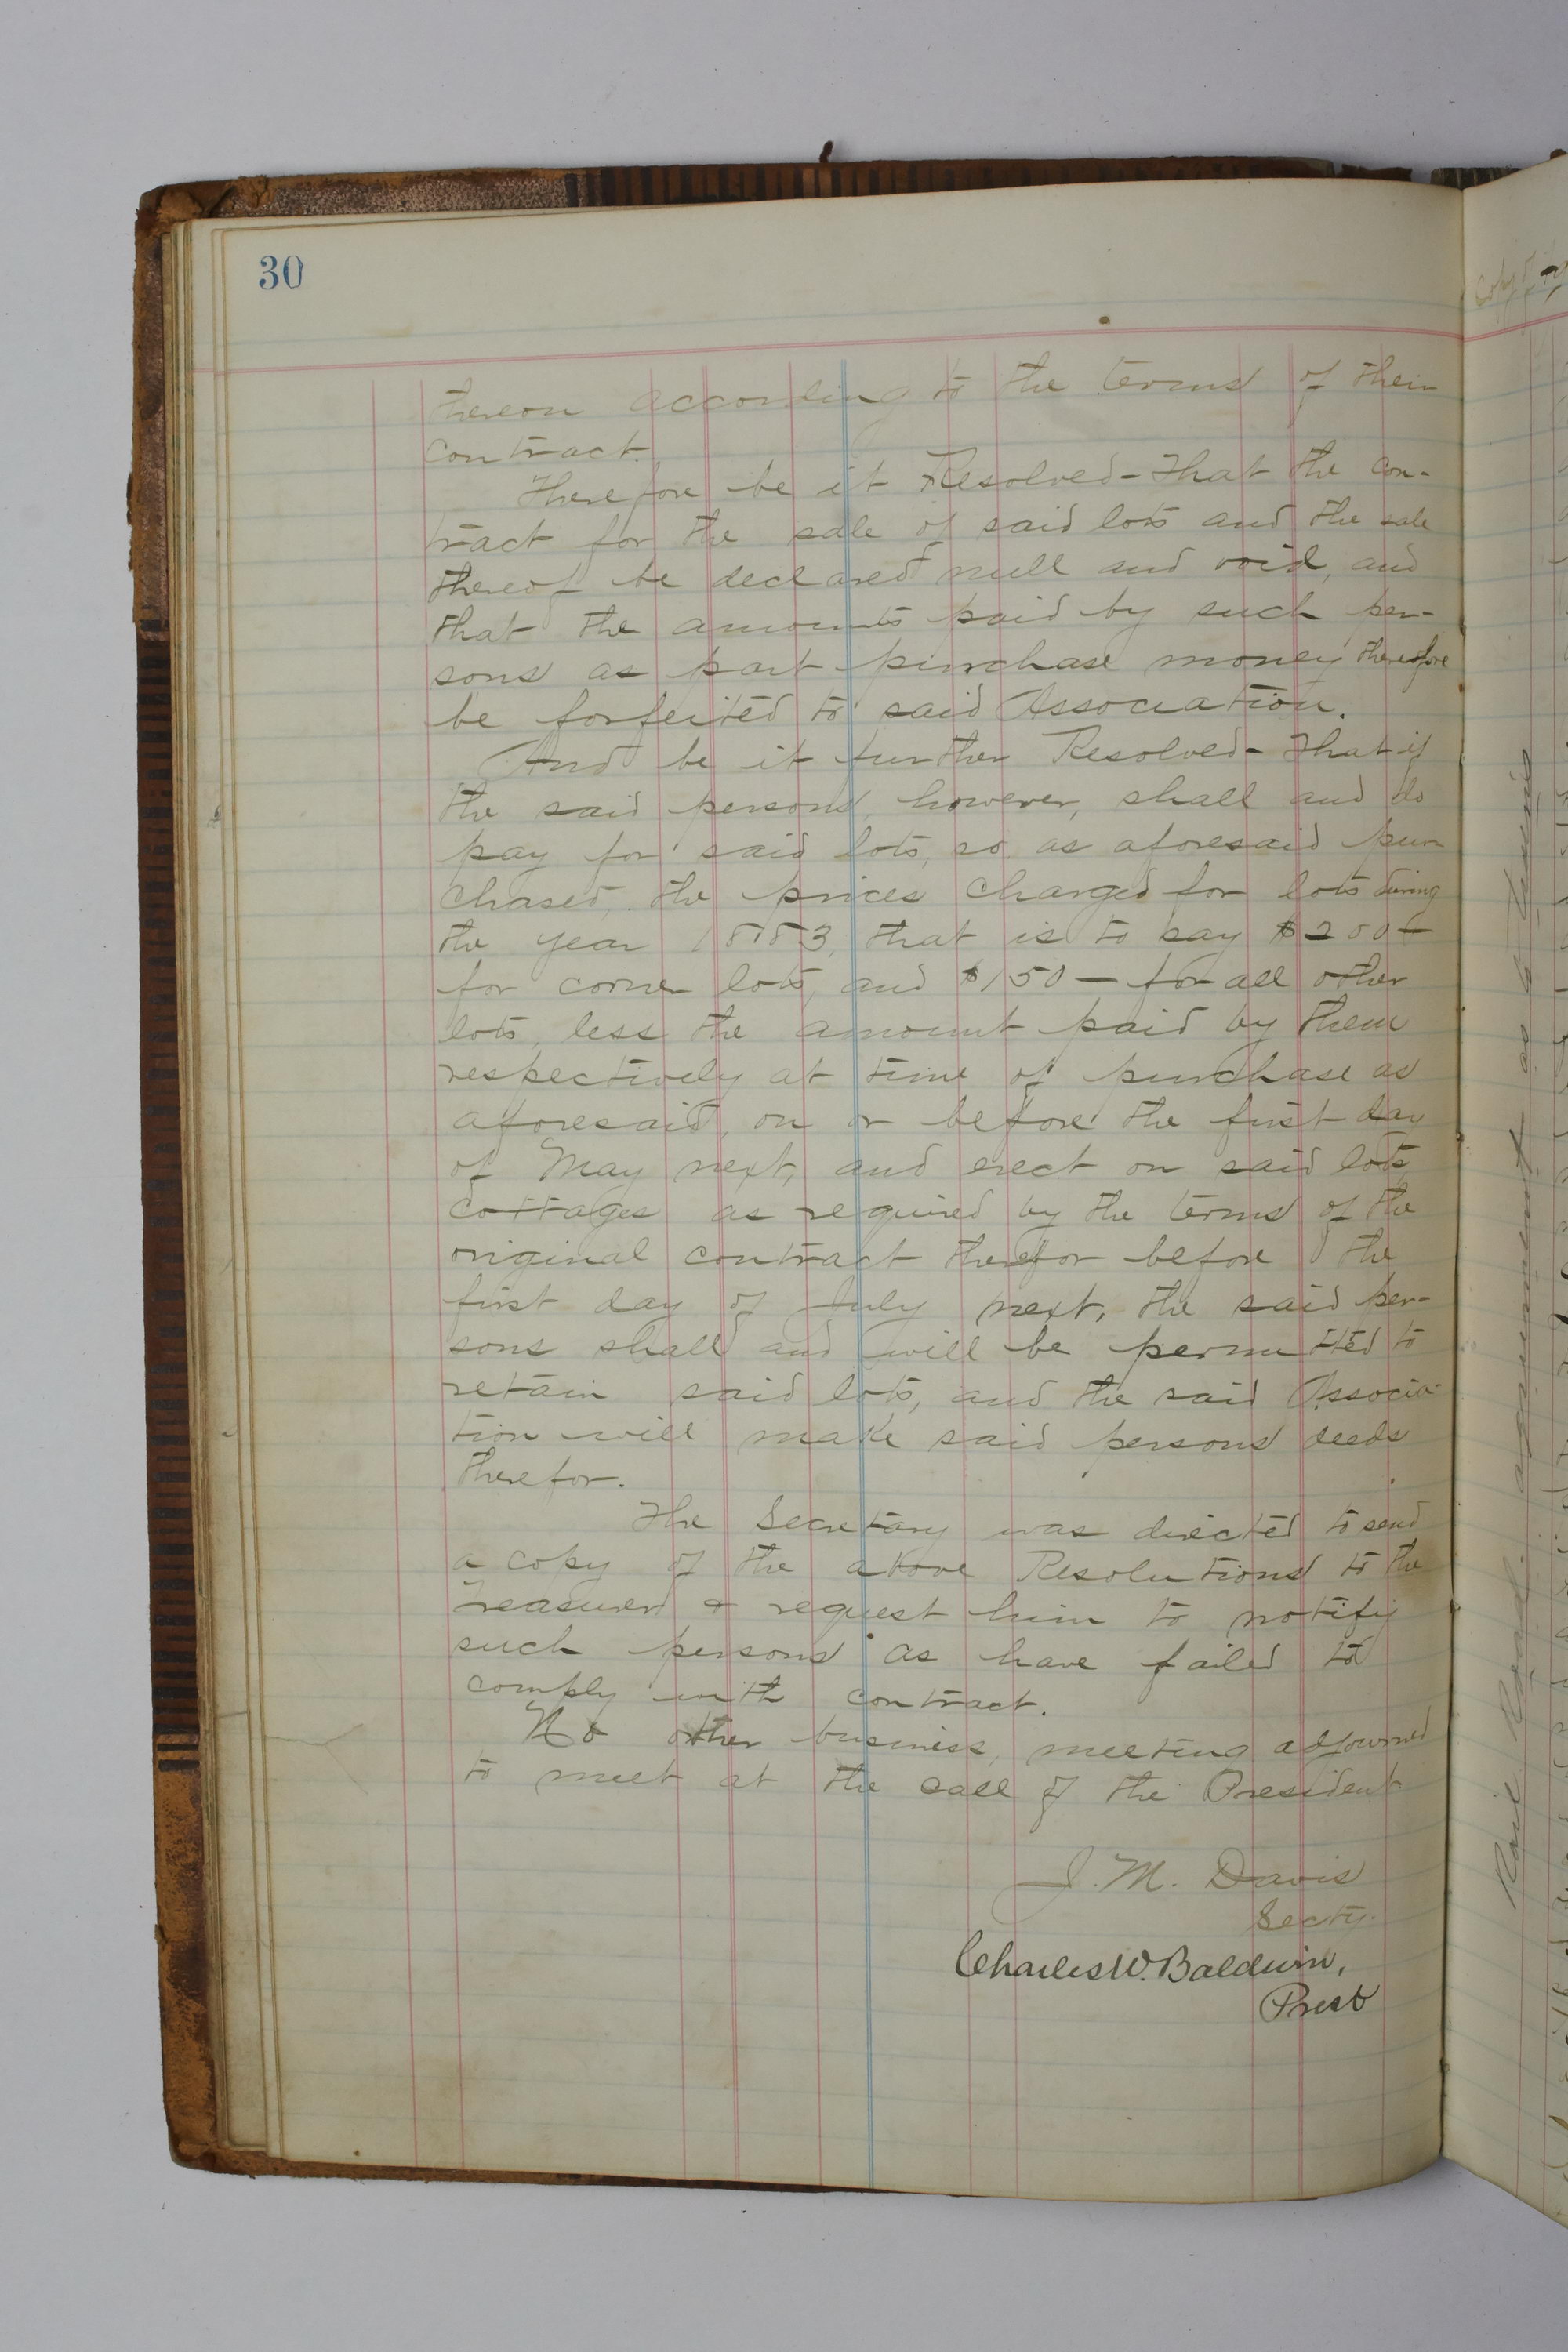 30
thereon according to the terms of their
contract.
Therefore be it Resolved - That the con-
tract for the sale of said lots and the sale
thereof be declared null and void, and
that the amounts paid by such per-
sons as part purchase money therefore
be forfeited to said Association.
And be it further Resolved - That if
the said persons, however, shall and do
pay for said lots, so as aforesaid pur
chased, the prices charged for lots during
the year 1883, that is to say $200-
for corner lots, and $150 - for all other
lots, less the amount paid by them
respectively at time of purchase as
aforesaid, on or before the first day
of May next, and erect on said lots
cottages as required by the terms of the
original contract therefor before the
first day of July next, the said per-
sons shall and will be permitted to
retain said lots, and the said Associa-
tion will make said persons deeds
therefor.
The Secretary was directed to send
a copy of the above Resolutions to the
Treasurer & request him to notify
such persons as have failed to
comply with contract.
No other business, meeting adjourned
to meet at the call of the President
J. M. Davis
Secty.
Charles W. Baldwin,
Prest
Copy
Rail Road agreement as to Terms